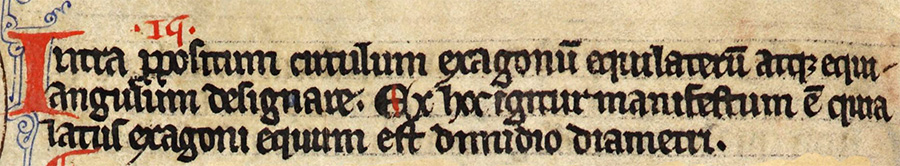 ·15·
Intra ꝓpositum circulum exagonū equilaterū atqꝫ equi-
angulum designare. Ex hoc igitur manifestum ē quia
latus exagoni equum est dimidio diametri.